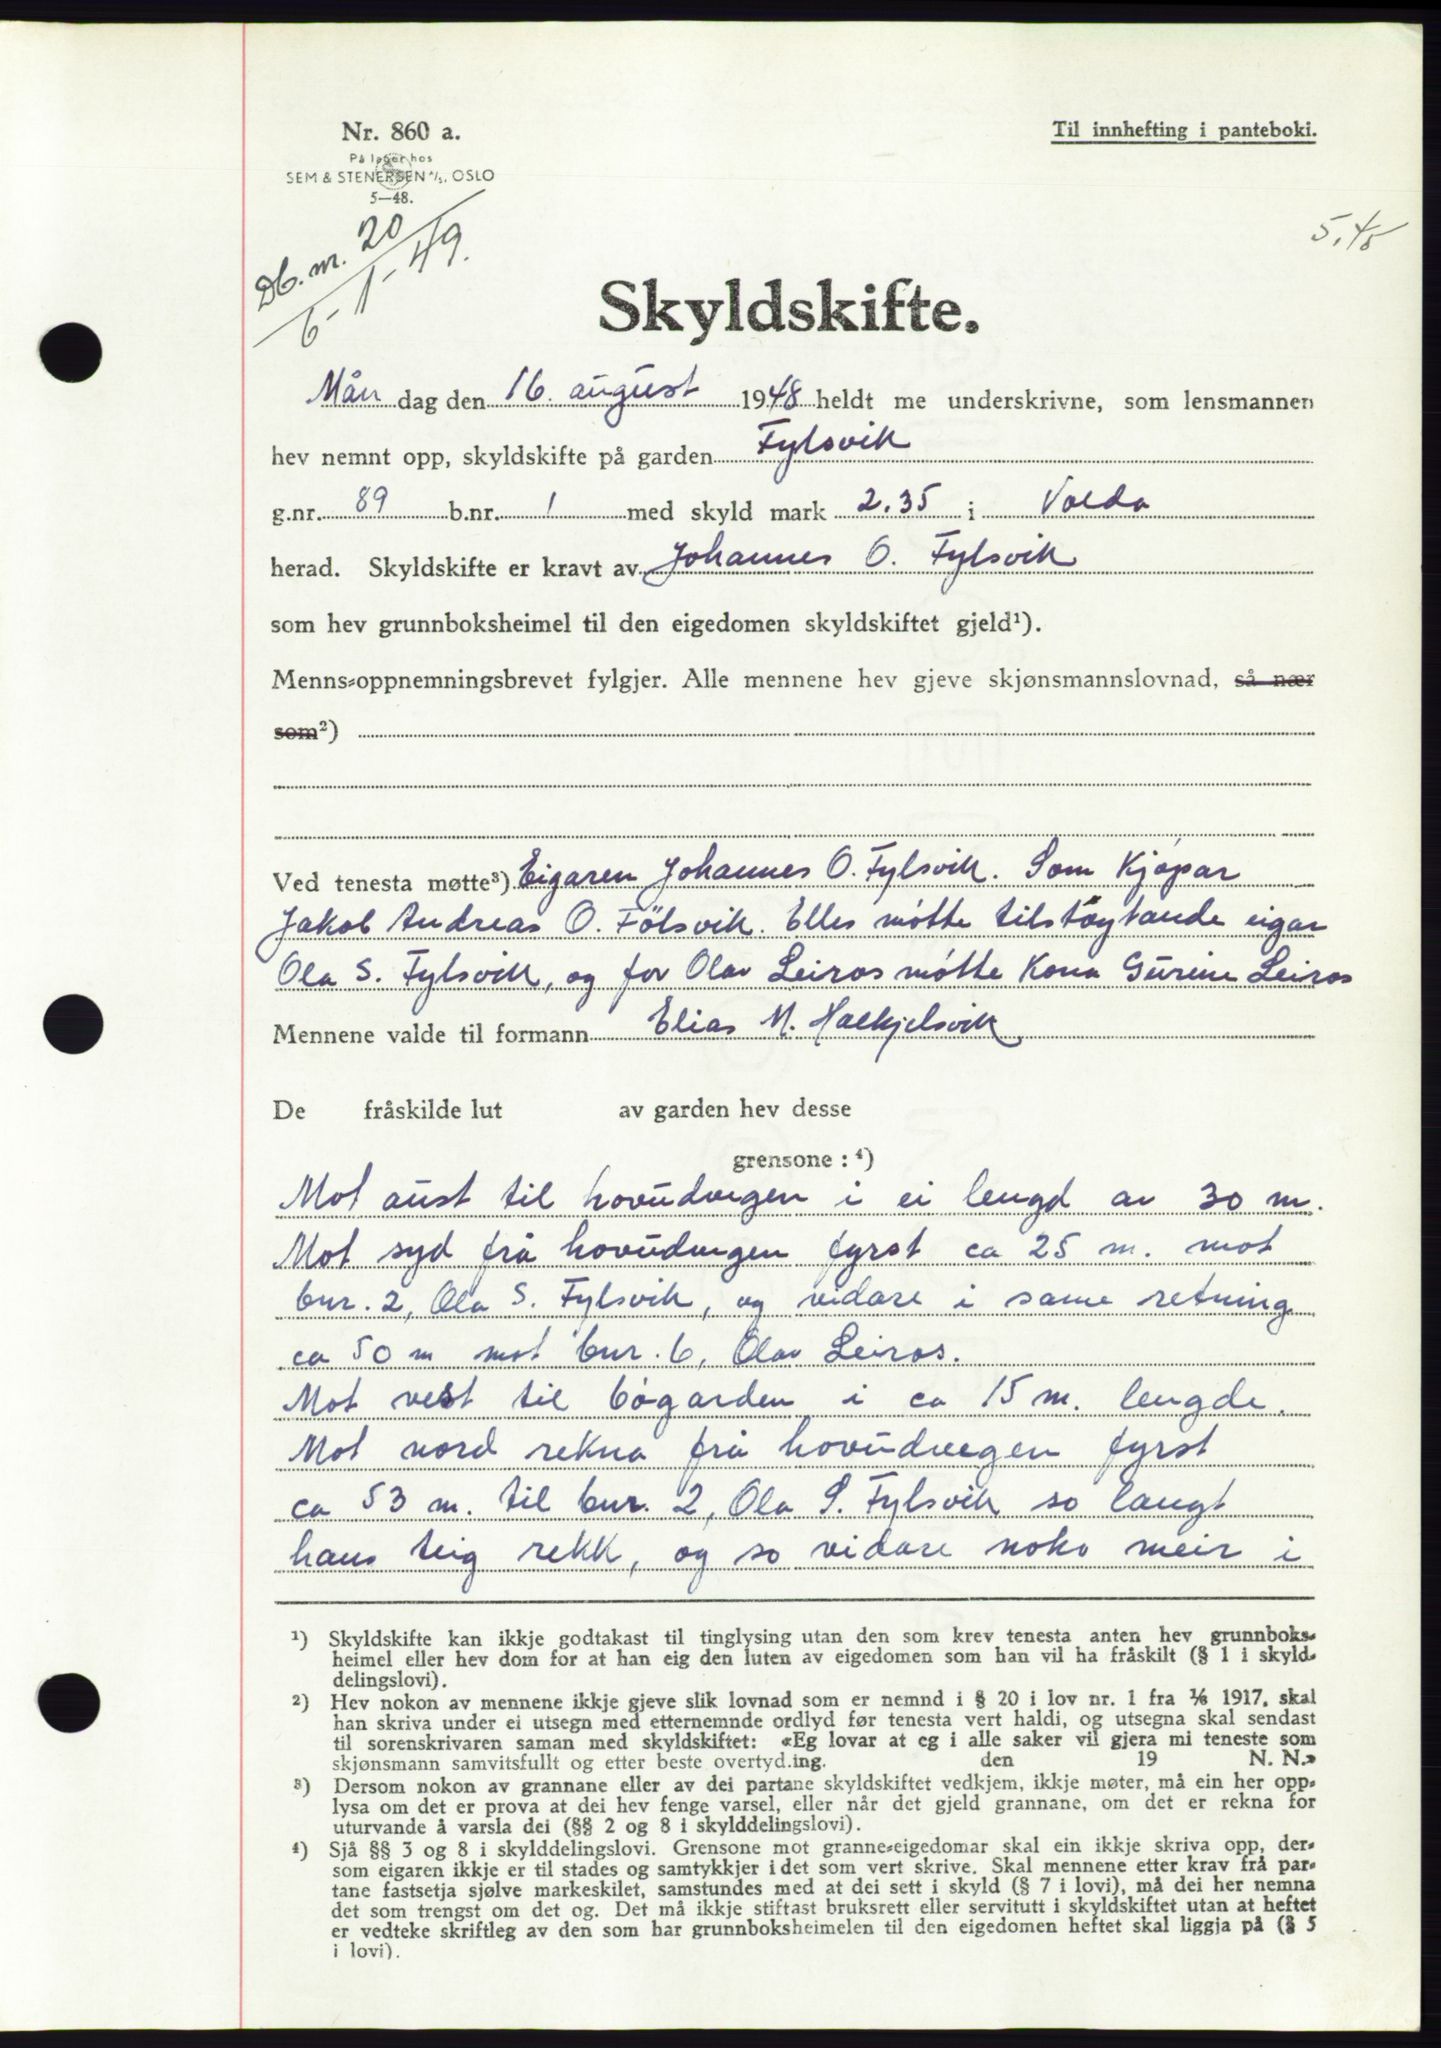 Nr. 860 a.
Til innhefting i panteboki.
På lager hos
SEM & STENERSEN A/S, OSLO
5—48.
Db. nr. 20
6-1-49.
5,45
Skyldskifte.
Mån dag den 16. august 1948 heldt me underskrivne, som lensmannen
hev nemnt opp, skyldskifte på garden Fylsvik
g.nr. 89 b.nr. 1 med skyld mark 2.35 i Volda
herad. Skyldskifte er kravt av Johannes O. Fylsvik
som hev grunnboksheimel til den eigedomen skyldskiftet gjeld¹).
Menns-oppnemningsbrevet fylgjer. Alle mennene hev gjeve skjønsmannslovnad, så nær
som²)
Ved tenesta møtte³) Eigaren Johannes O. Fylsvik. Som Kjøpar
Jakob Andreas O. Fölsvik. Elles møtte tilstøytande eigar
Ola S. Fylsvik, og for Olav Leiros møtte Kona Gurine Leiros
Mennene valde til formann Elias M. Halkjelsvik
De fråskilde lut av garden hev desse
grensone : ⁴)
Mot aust til hovudvegen i ei lengd av 30 m.
Mot syd frå hovudvegen fyrst ca 25 m. mot
bnr. 2, Ola S. Fylsvik, og vidare i same retning
ca 50 m mot bnr. 6, Olav Leiros.
Mot vest til bøgarden i ca 15 m. lengde.
Mot nord rekna frå hovudvegen fyrst
ca 53 m. til bnr. 2, Ola S. Fylsvik so langt
hans teig rekk, og so vidare noko meir i
¹) Skyldskifte kan ikkje godtakast til tinglysing utan den som krev tenesta anten hev grunnboks-
heimel eller hev dom for at han eig den luten av eigedomen som han vil ha fråskilt (§ 1 i skyld-
delingslovi).
²) Hev nokon av mennene ikkje gjeve slik lovnad som er nemnd i § 20 i lov nr. 1 fra ⅙ 1917, skal
han skriva under ei utsegn med etternemnde ordlyd før tenesta vert haldi, og utsegna skal sendast
til sorenskrivaren saman med skyldskiftet: «Eg lovar at eg i alle saker vil gjera mi teneste som
skjønsmann samvitsfullt og etter beste overtyding. den 19 N. N.»
³) Dersom nokon av grannane eller av dei partane skyldskiftet vedkjem, ikkje møter, må ein her opp-
lysa om det er prova at dei hev fenge varsel, eller når det gjeld grannane, om det er rekna for
uturvande å varsla dei (§§ 2 og 8 i skylddelingslovi).
⁴) Sjå §§ 3 og 8 i skylddelingslovi. Grensone mot granne-eigedomar skal ein ikkje skriva opp, der-
som eigaren ikkje er til stades og samtykkjer i det som vert skrive. Skal mennene etter krav frå par-
tane fastsetja sjølve markeskilet, samstundes med at dei sett i skyld (§ 7 i lovi), må dei her nemna
det som trengst om det og. Det må ikkje stiftast bruksrett eller servitutt i skyldskiftet utan at heftet
er vedteke skriftleg av den som har grunnboksheimelen til den eigedomen heftet skal liggja på (§ 5
i lovi).